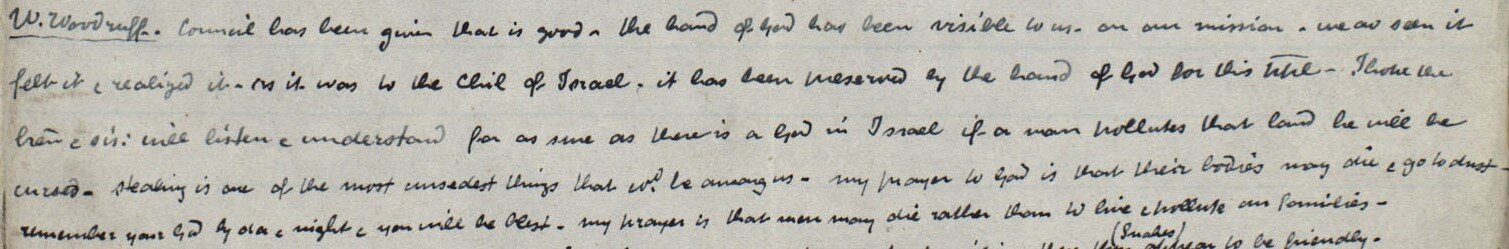 W. Woodruff. Council has been given that is good - the hand of God has been visible to us - on our mission - we av seen it
felt it & realized it - as it was to the Chil of Israel - it has been preserved by the hand of God for this ppl - I hope the
bren & sis: will listen & understand for as sure as there is a God in Israel if a man pollutes that land he will be
cursed - stealing is one of the most cursedest things that wd. be among us - my prayer to God is that their bodies may die & go to dust -
remember your God by da & night & you will be blest - my prayer is that men may die rather than to live & pollute our families -
(Snakes)
appear to be friendly -